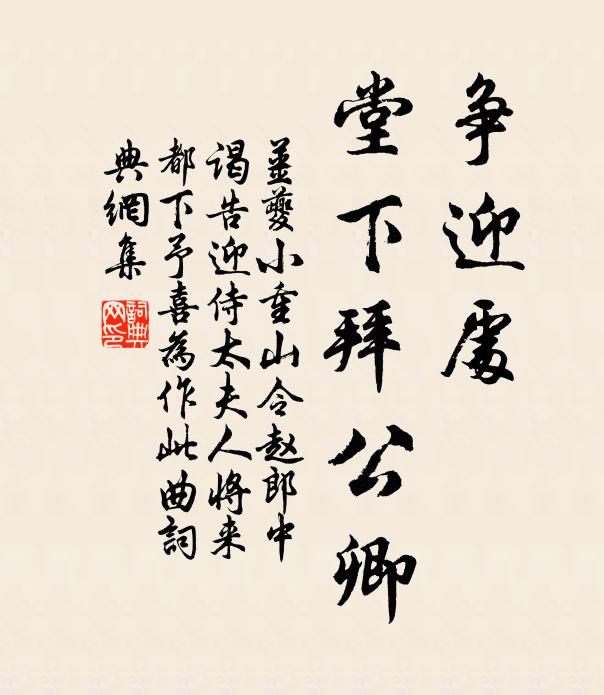 争迎處
堂下拜公卿
姜夔小重山令赵郎中
谒告迎侍太夫人將来
都下予喜為作此曲詞
典網集
詞典
网印